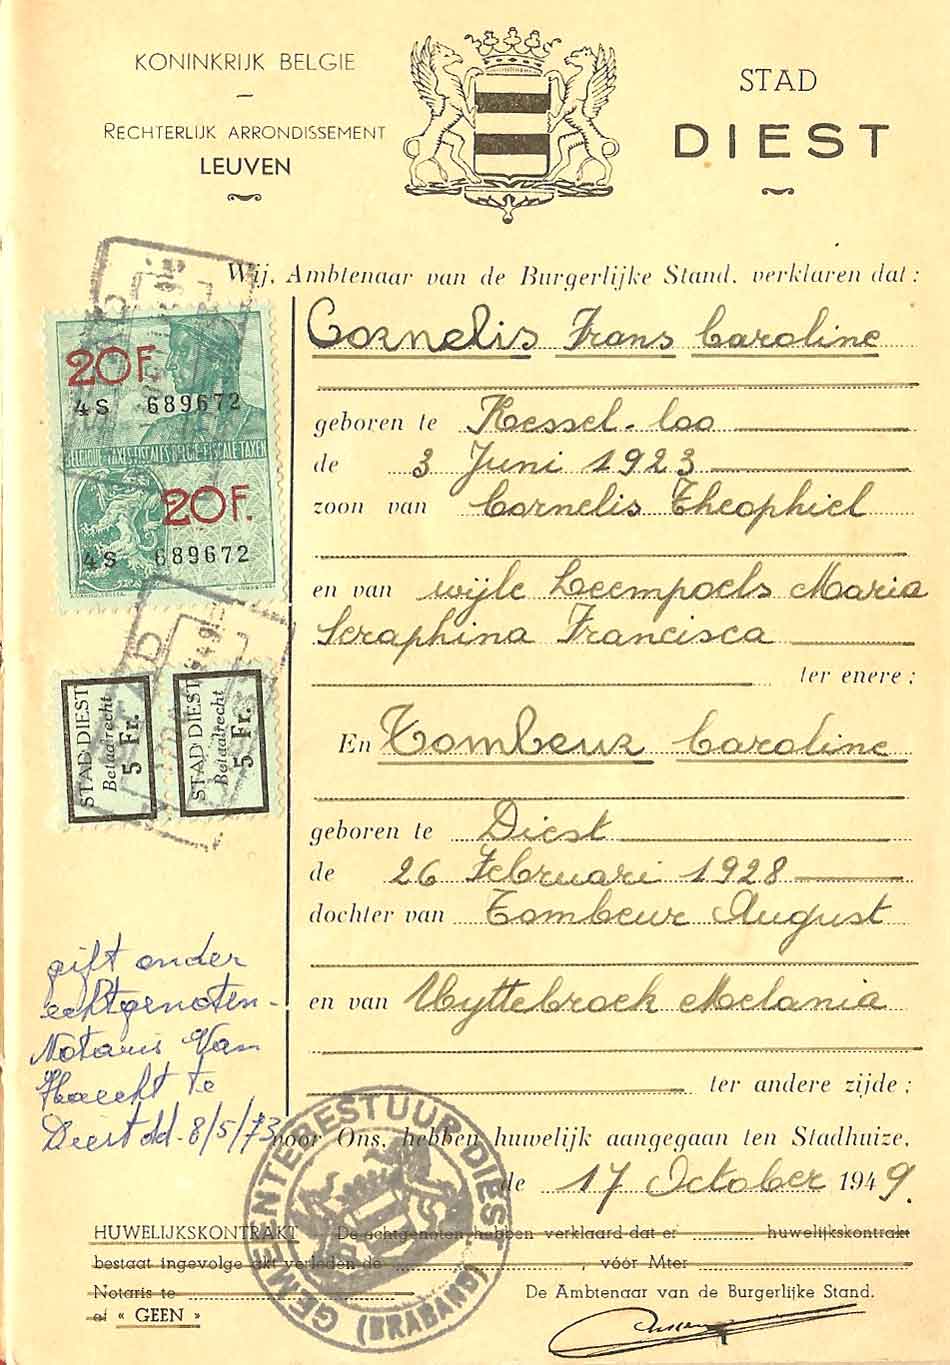 KONINKRIJK BELGIE
RECHTERLIJK ARRONDISSEMENT
LEUVEN
STAD
DIEST
Wij, Ambtenaar van de Burgerlijke Stand, verklaren dat :
Cornelis Frans Caroline
geboren te Kessel-loo
de 3 Juni 1923
zoon van Cornelis Theophiel
en van wijle Leempoels Maria
Seraphina Francisca
ter enere ;
En Tombeur Caroline
geboren te Diest
de 26 Februari 1928
dochter van Tombeur August
en van Uyttebroek Melania
ter andere zijde ;
voor Ons, hebben huwelijk aangegaan ten Stadhuize,
de 17 October 1949.
HUWELIJKSKONTRAKT De echtgenoten hebben verklaard dat er huwelijkskontrakt
bestaat ingevolge akt verleden de , vóór Mter
Notaris te
of « GEEN »
De Ambtenaar van de Burgerlijke Stand.
20F.
4S 689672
BELGIQUE-TAXES FISCALES BELGIË-FISCALE TAXEN
20F.
4S 689672
STAD DIEST
Betaalrecht
5 Fr.
STAD DIEST
Betaalrecht
5 Fr.
gift onder
echtgenoten -
Notaris Van
Haecht te
Diest dd. 8/5/73
GEMEENTEBESTUUR DIEST
(BRABAND)